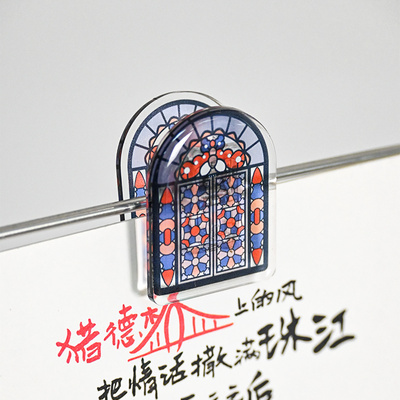 猎德 上的风
把情话撒满珠江